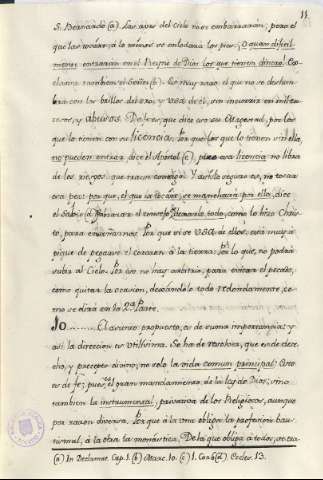 11
S. Bernardo (a). Las aves del Cielo no se embarazaran; pero el
que las tocare, à lo menos se enlodara los pies. O quan dificil-
mente entraràn en el Reyno de Dios los que tienen dinero. Ex-
clama tambien el Señor (b). Es muy raro el que no se deslum-
bra con los brillos del oro, y usa de el, sin incurrir en infinitos
y abusos. De los que dice con su
los que lo tienen con su licencia. Por que los que lo tienen sin ella,
no pueden entrar, dice el Apostol (c), pues esa licencia no libra
de los riesgos que traen consigo. Y asi lo seguro es, no tocar
esa pez: por que, el que la tocàre, se manchará por ella, dice
el Sabio (d). dexando todo, como lo hizo Chris-
to, para enseñarnos. Por que si se usa de ellas, està muy à
pique de pegarse el corazon à la tierra. Por lo que, no podrà
subir al Cielo. Por eso no hay arbitrio, para evitar el pecado,
como quitar la ocasion, dexandolo todo redondamente, co-
mo se dirà en la 2ª. Parte.
10........El asunto propuesto, es de suma importancia; y
asi la direccion es utilisima. Se ha de resolver, que es de dere-
cho, y precepto divino, no solo la vida comun principal: Esto
es de fe; pues es el gran mandamiento de la ley de Dios; sino
tambien la instrumental, privativa de los Religiosos, aunque
por razon diversa. Por que à la una obliga la profesion bau-
tismal, à la otra la monastica. De la que obliga a todos, se tra-
(a) In Declamat. Cap. 1. (b) Marc. 10. (c) 1. Cor. 6 (d) Eccles. 13.